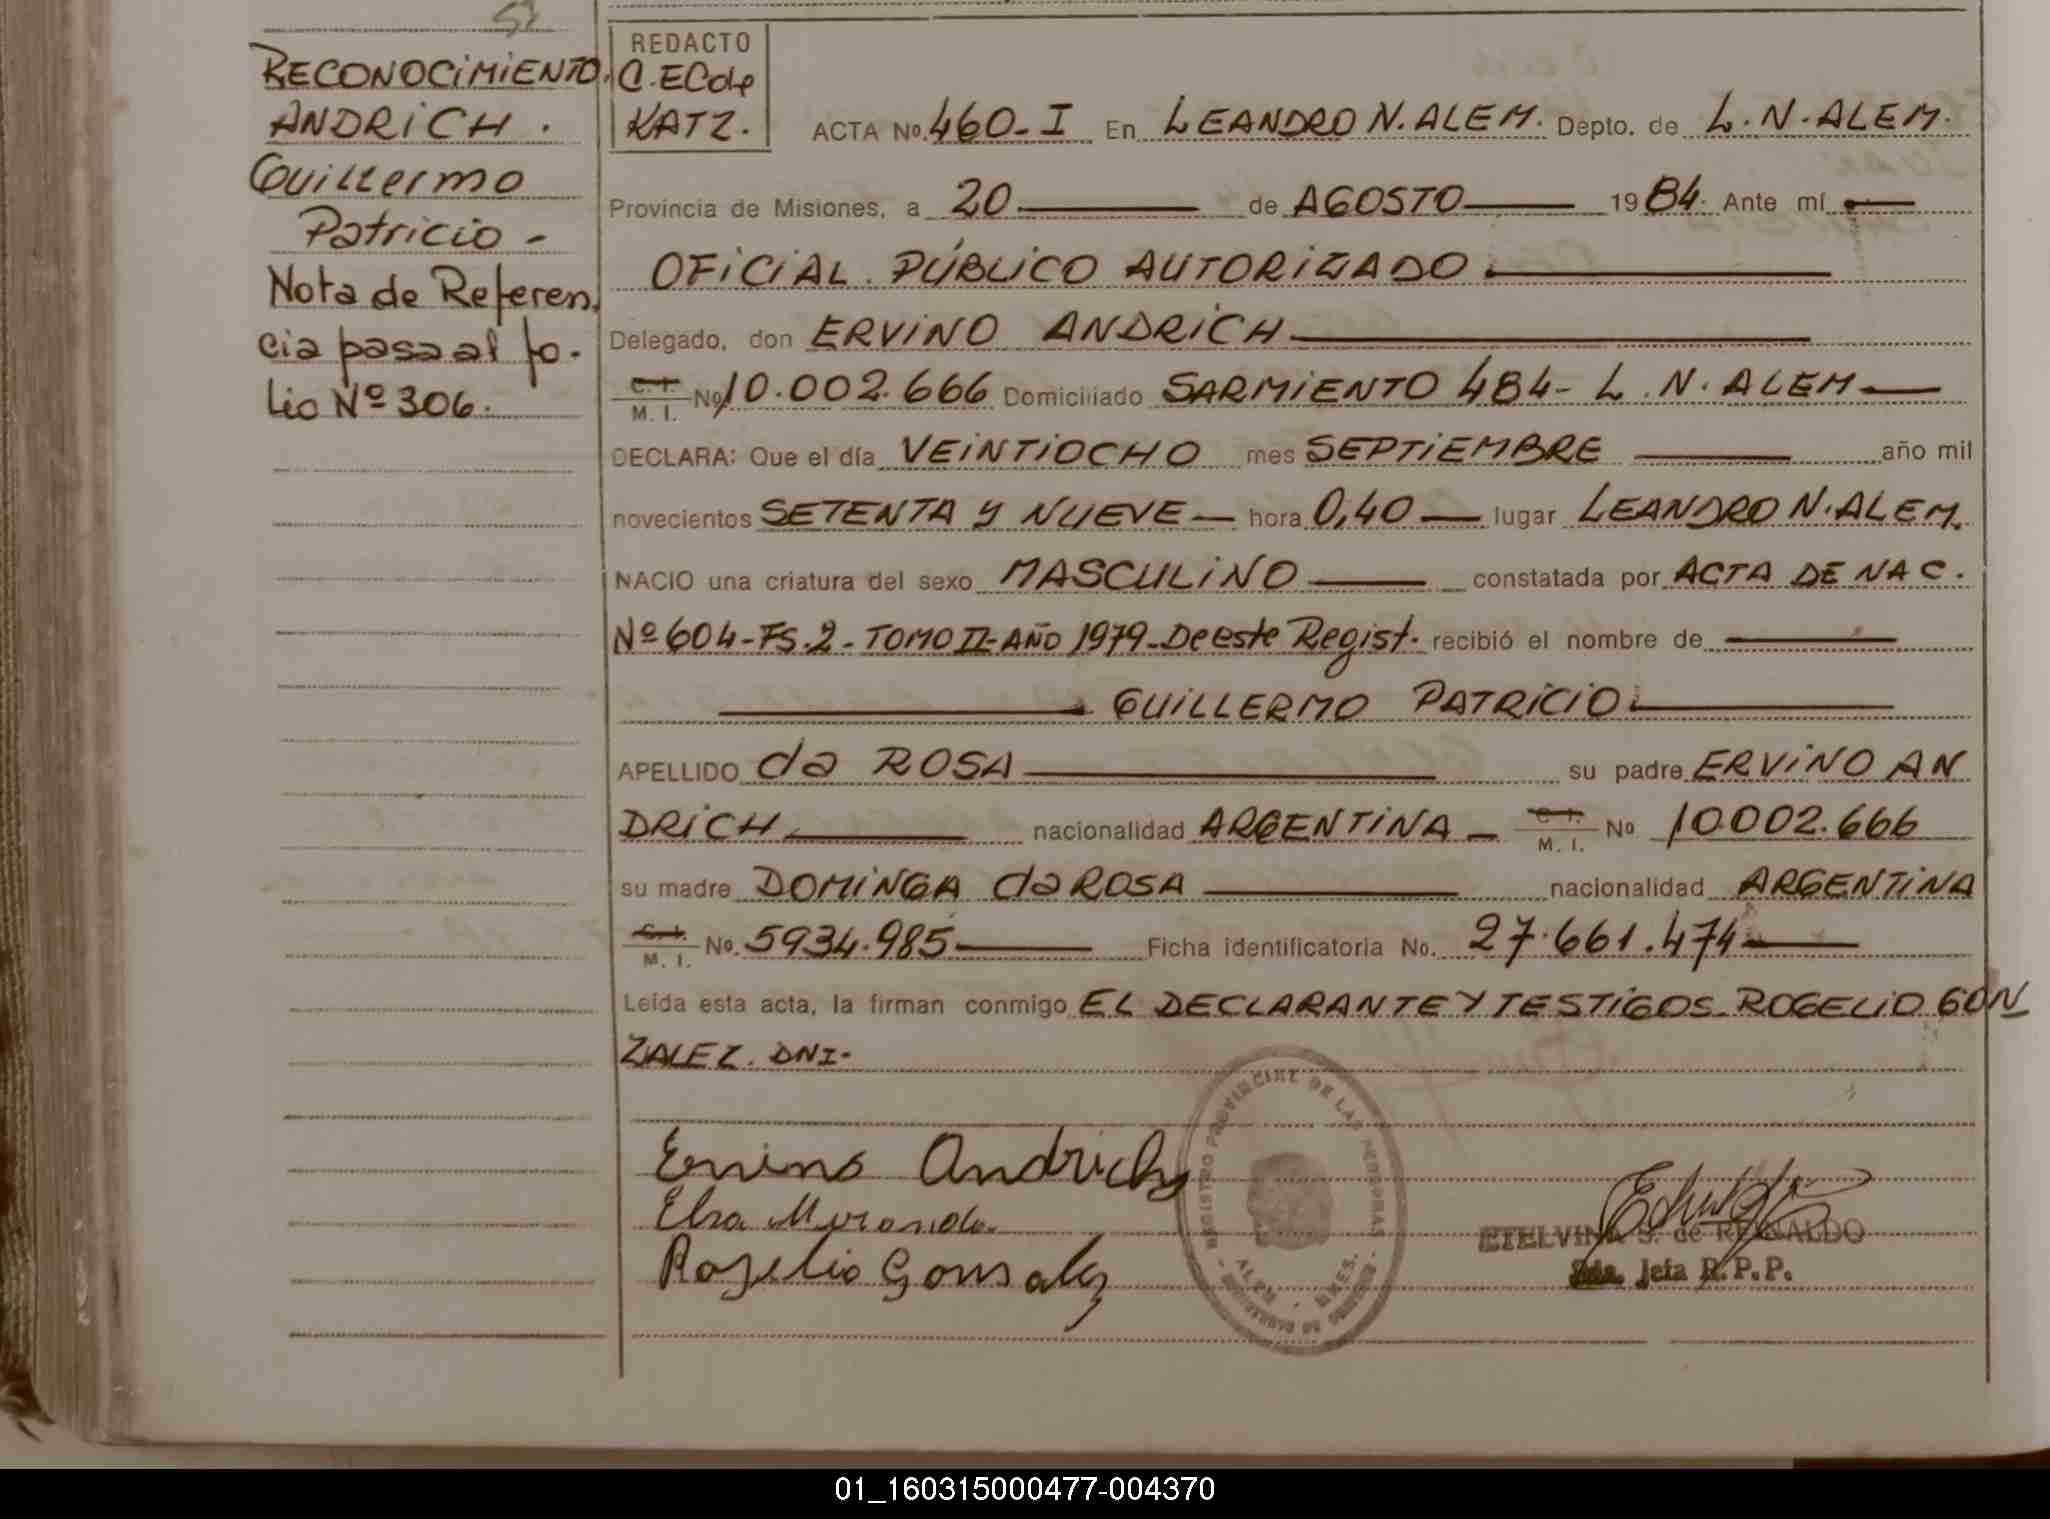 57
RECONOCIMIENTO.
ANDRICH.
Guillermo
Patricio -
Nota de Referen.
cia pasa al fo-
lio Nº 306.
REDACTO
C. ECde
KATZ.
ACTA No. 460-I En LEANDRO N. ALEM. Depto. de L. N. ALEM.
Provincia de Misiones, a 20 de AGOSTO 1984. Ante mí
OFICIAL PÚBLICO AUTORIZADO
Delegado, don ERVINO ANDRICH
C. I. M. I. No 10.002.666 Domiciliado SARMIENTO 484- L. N. ALEM
DECLARA: Que el día VEINTIOCHO mes SEPTIEMBRE año mil
novecientos SETENTA Y NUEVE hora 0,40 lugar LEANDRO N. ALEM.
NACIO una criatura del sexo MASCULINO constatada por ACTA DE NAC.
Nº 604-FS.2-TOMO II-AÑO 1979-De este Regist. recibió el nombre de
GUILLERMO PATRICIO
APELLIDO da ROSA su padre ERVINO AN
DRICH nacionalidad ARGENTINA C. I. M. I. No 10002.666
su madre DOMINGA da ROSA nacionalidad ARGENTINA
C. I. M. I. No. 5934.985 Ficha identificatoria No. 27.661.474
Leída esta acta, la firman conmigo EL DECLARANTE Y TESTIGOS-ROGELIO GON
ZALEZ. DNI-
Ervino Andrich
Elsa Miranda
Rogelio Gonsalez
REGISTRO PROVINCIAL DE LAS PERSONAS
ALEM - MNES.
MINISTERIO DE GOBIERNO
ETELVINA S. de REINALDO
Sda. Jefa R.P.P.
01_160315000477-004370